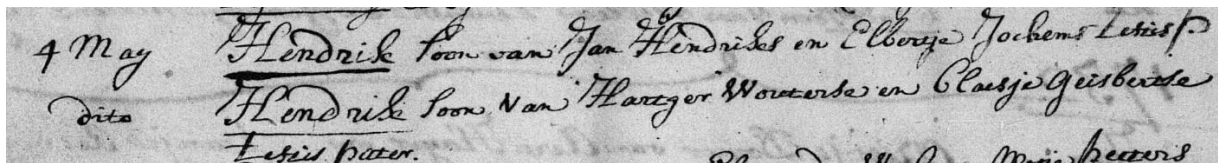 4 May Hendrik soon van Jan Hendrikes en Elbertje Jochems testis p.
dito Hendrik soon van Hartger Wouterse en Claesje Geisbertse
testis pater.
petters